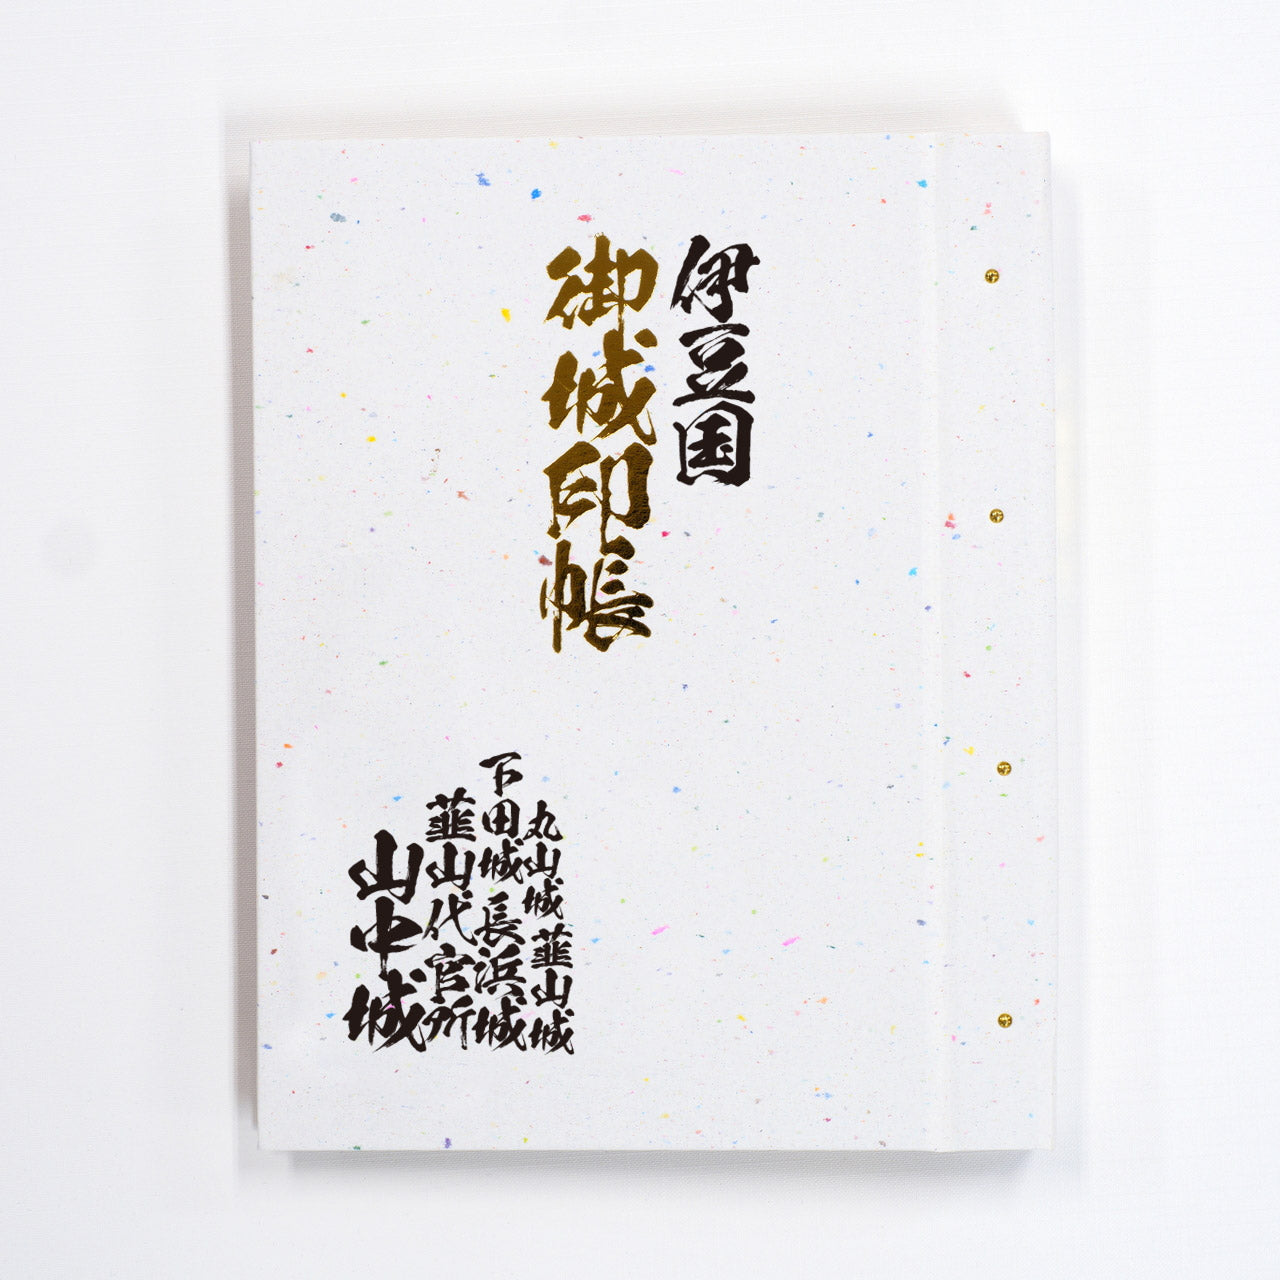 伊豆国
御城印帳
丸山城 韮山城
下田城 長浜城
韮山代官所
山中城